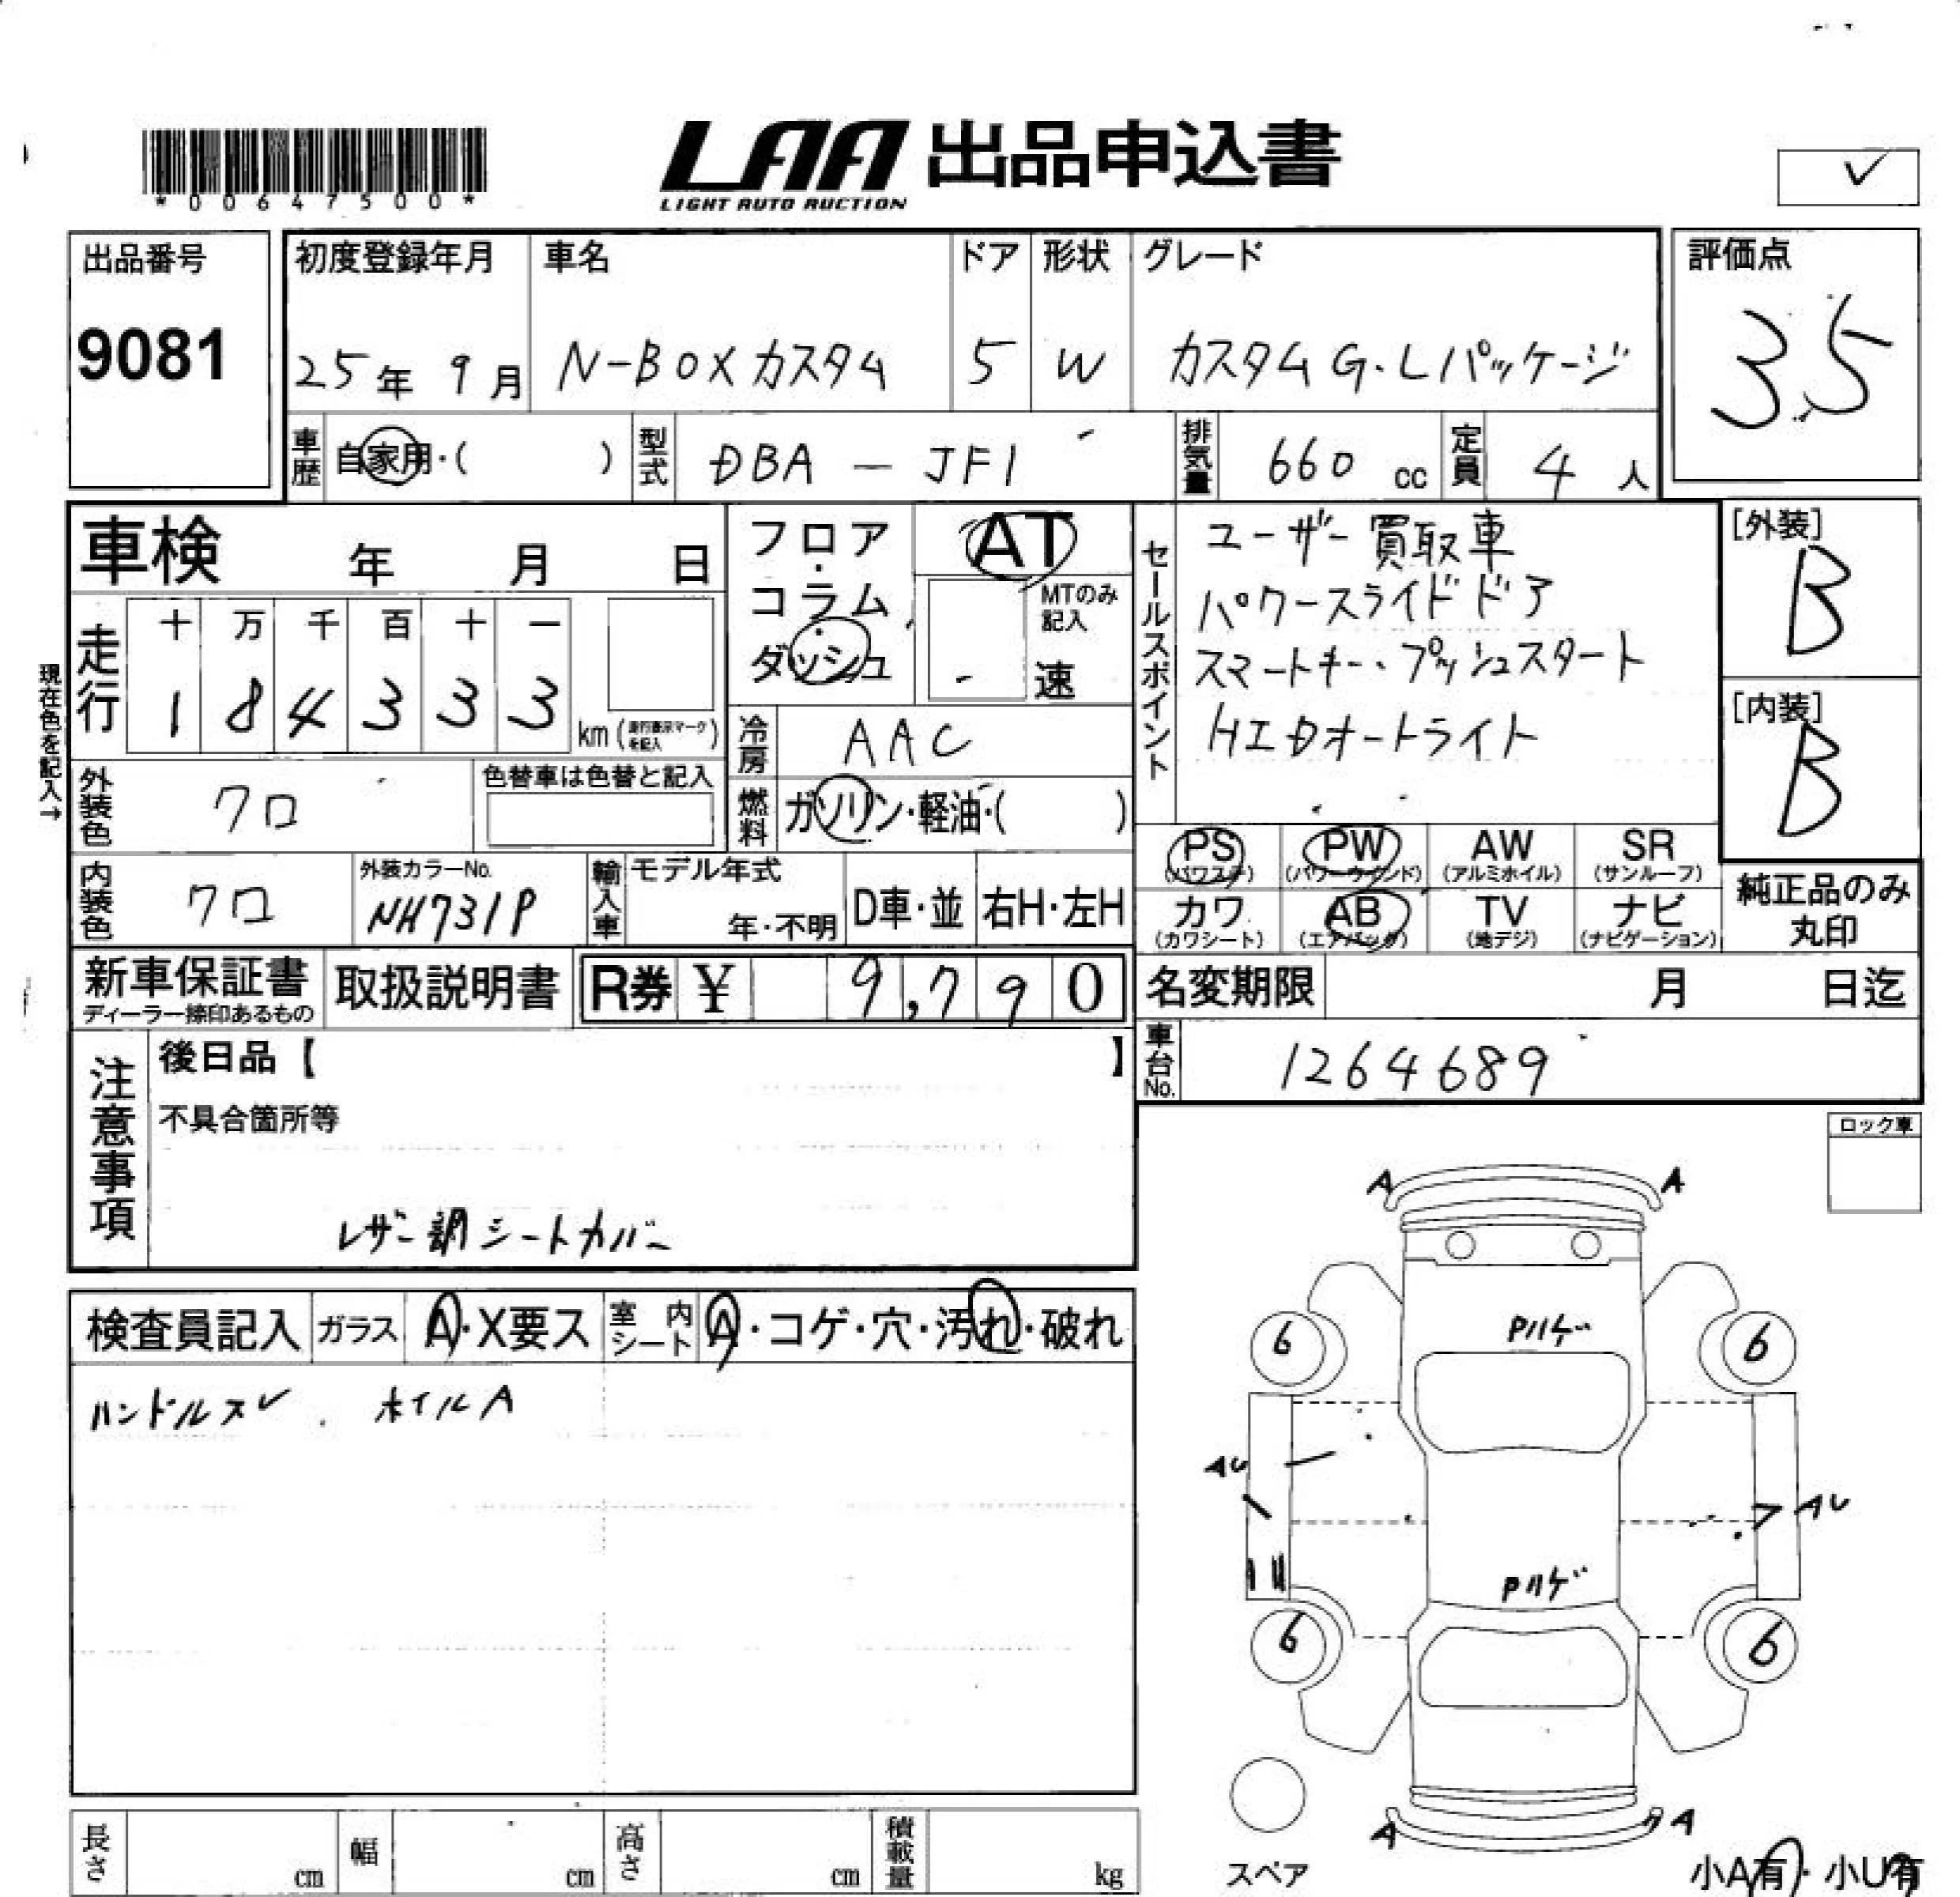 *00647500*
LAA 出品申込書
LIGHT AUTO AUCTION
✓
出品番号
9081
初度登録年月
25年 9月
車名
N-BOXカスタム
ドア
5
形状
W
グレード
カスタムG・Lパッケージ
評価点
3.5
車歴
自家用・( )
型式
DBA - JF1
排気量
660 cc
定員
4 人
車検 年 月 日
走行
十 万 千 百 十 一
1 8 4 3 3 3
km
フロア・コラム・ダッシュ
AT
MTのみ記入
速
冷房
AAC
燃料
ガソリン・軽油・( )
セールスポイント
ユーザー買取車
パワースライドドア
スマートキー・プッシュスタート
HIDオートライト
[外装]
B
[内装]
B
現在色を記入→
外装色
クロ
色替車は色替と記入
内装色
クロ
外装カラーNo.
NH731P
輸入車
モデル年式
年・不明
D車・並
右H・左H
PS
(パワステ)
PW
(パワーウインド)
AW
(アルミホイル)
SR
(サンルーフ)
カワ
(カワシート)
AB
(エアバック)
TV
(地デジ)
ナビ
(ナビゲーション)
純正品のみ
丸印
新車保証書
ディーラー捺印あるもの
取扱説明書
R券 ¥ 9,790
名変期限 月 日迄
車台No.
1264689
注意事項
後日品【 】
不具合箇所等
レザー調シートカバー
ロック車
検査員記入
ガラス
A・X要ス
室内シート
A・コゲ・穴・汚れ・破れ
ハンドルスレ . ホイルA
A A
Pハゲ
6 6
AU
AU
Pハゲ
6 6
A A
スペア
小A有・小U有
長さ cm
幅 cm
高さ cm
積載量 kg